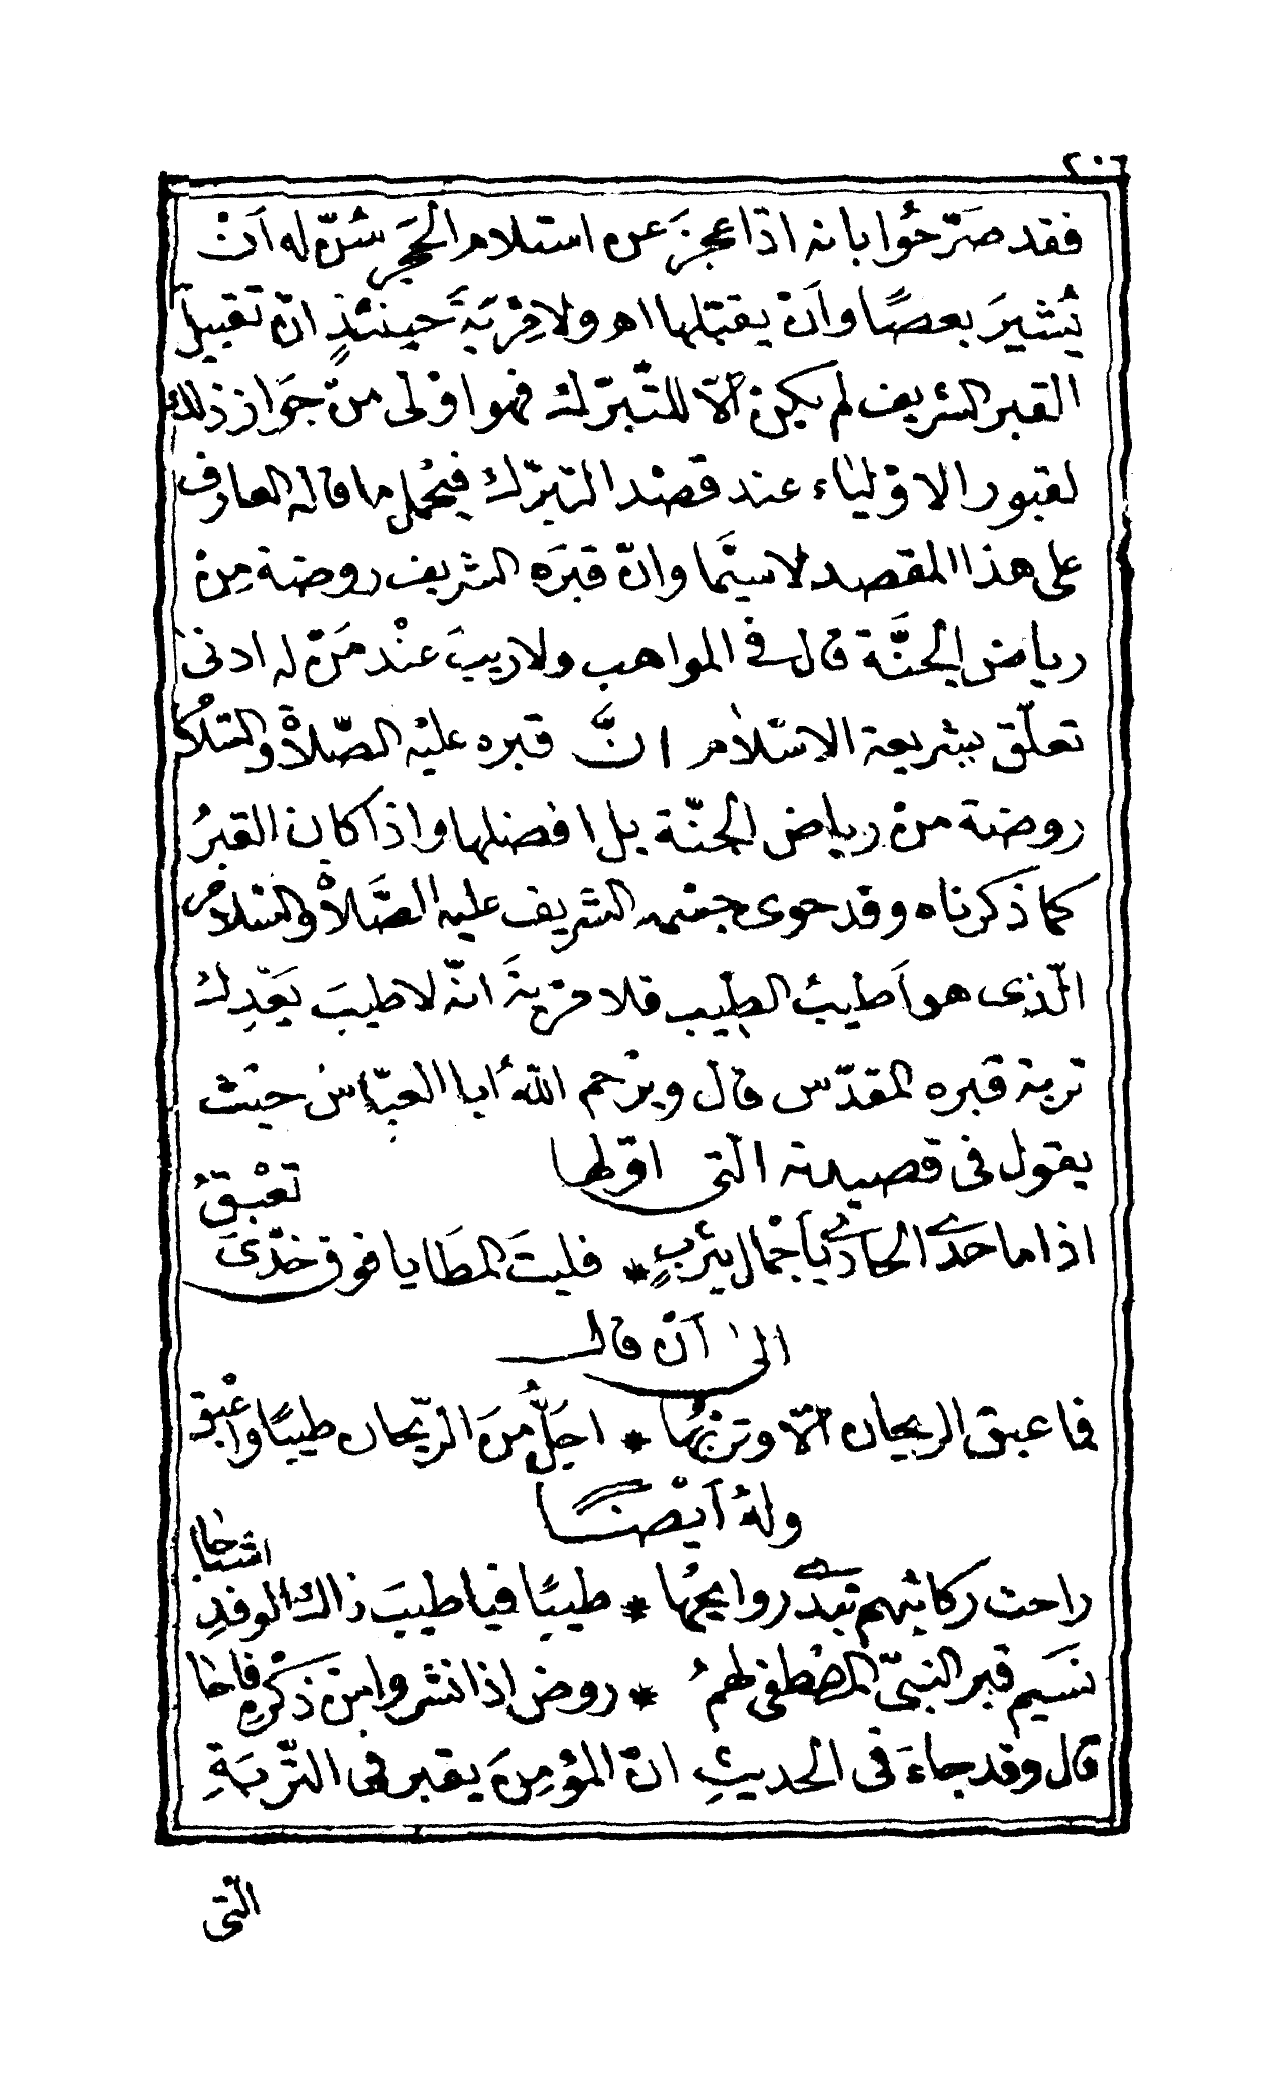 ٢٠٦
فقد صَرّحُوا بانه اذا عجزَ عن استلام الحَجَرِ سُنّ له اَنْ
يُشيرَ بعصًا واَنْ يقبّلها اهـ ولا مِرْيَةَ حينئذٍ انّ تقبيلَ
القبر الشريف لم يكن الّا للتّبرّك فهو اوْلى من جَواز ذلك
لقبور الاوْلياء عند قصْد التبرّك فيُحْمل ما قاله العارف
على هذا المقصد لاسيّمَا وانّ قبرَه الشريف روضة مِنْ
رياض الجنَّة قال في المواهب ولا ريبَ عنْد مَنْ له ادنى
تعلّق بشريعة الاسْلام انَّ قبره عليْه الصّلاةُ والسّلام
روضة منْ رياض الجنّة بل افضلها واذا كان القبرُ
كما ذكرناه وقد حوى جسْمه الشريف عليه الصَّلاةُ والسّلام
الّذى هو اَطيبُ الطيب فلا مرْيةَ انّه لا طيبَ يَعْدِل
تربة قبره المقدّس قال ويرْحم اللهُ ابا العبّاس حيْث
يقول فى قصيدته الّتى اوّلها
اذا ما حَدَى الحادى باَجْمال يثربٍ * فليتَ المطَايا فوق خدّىَ تعْبقُ
الى اَنْ قال
فما عبق الريحان الّا وتربُها * اجَلُّ منَ الرّيحان طيبًا واعْبق
ولهُ اَيْضًا
راحت ركائبُهم تبدى روايحُها * طيبًا فيا طيبَ ذاك الوفدِ اشباحا
نسَيم قبر النبىّ المصْطفى لهمُ * روض اذا نشروا منْ ذكْرهِ فاحا
قال وقد جاءَ فى الحديثِ انّ المؤمِنَ يقبر فى التّربَةِ
الّتى